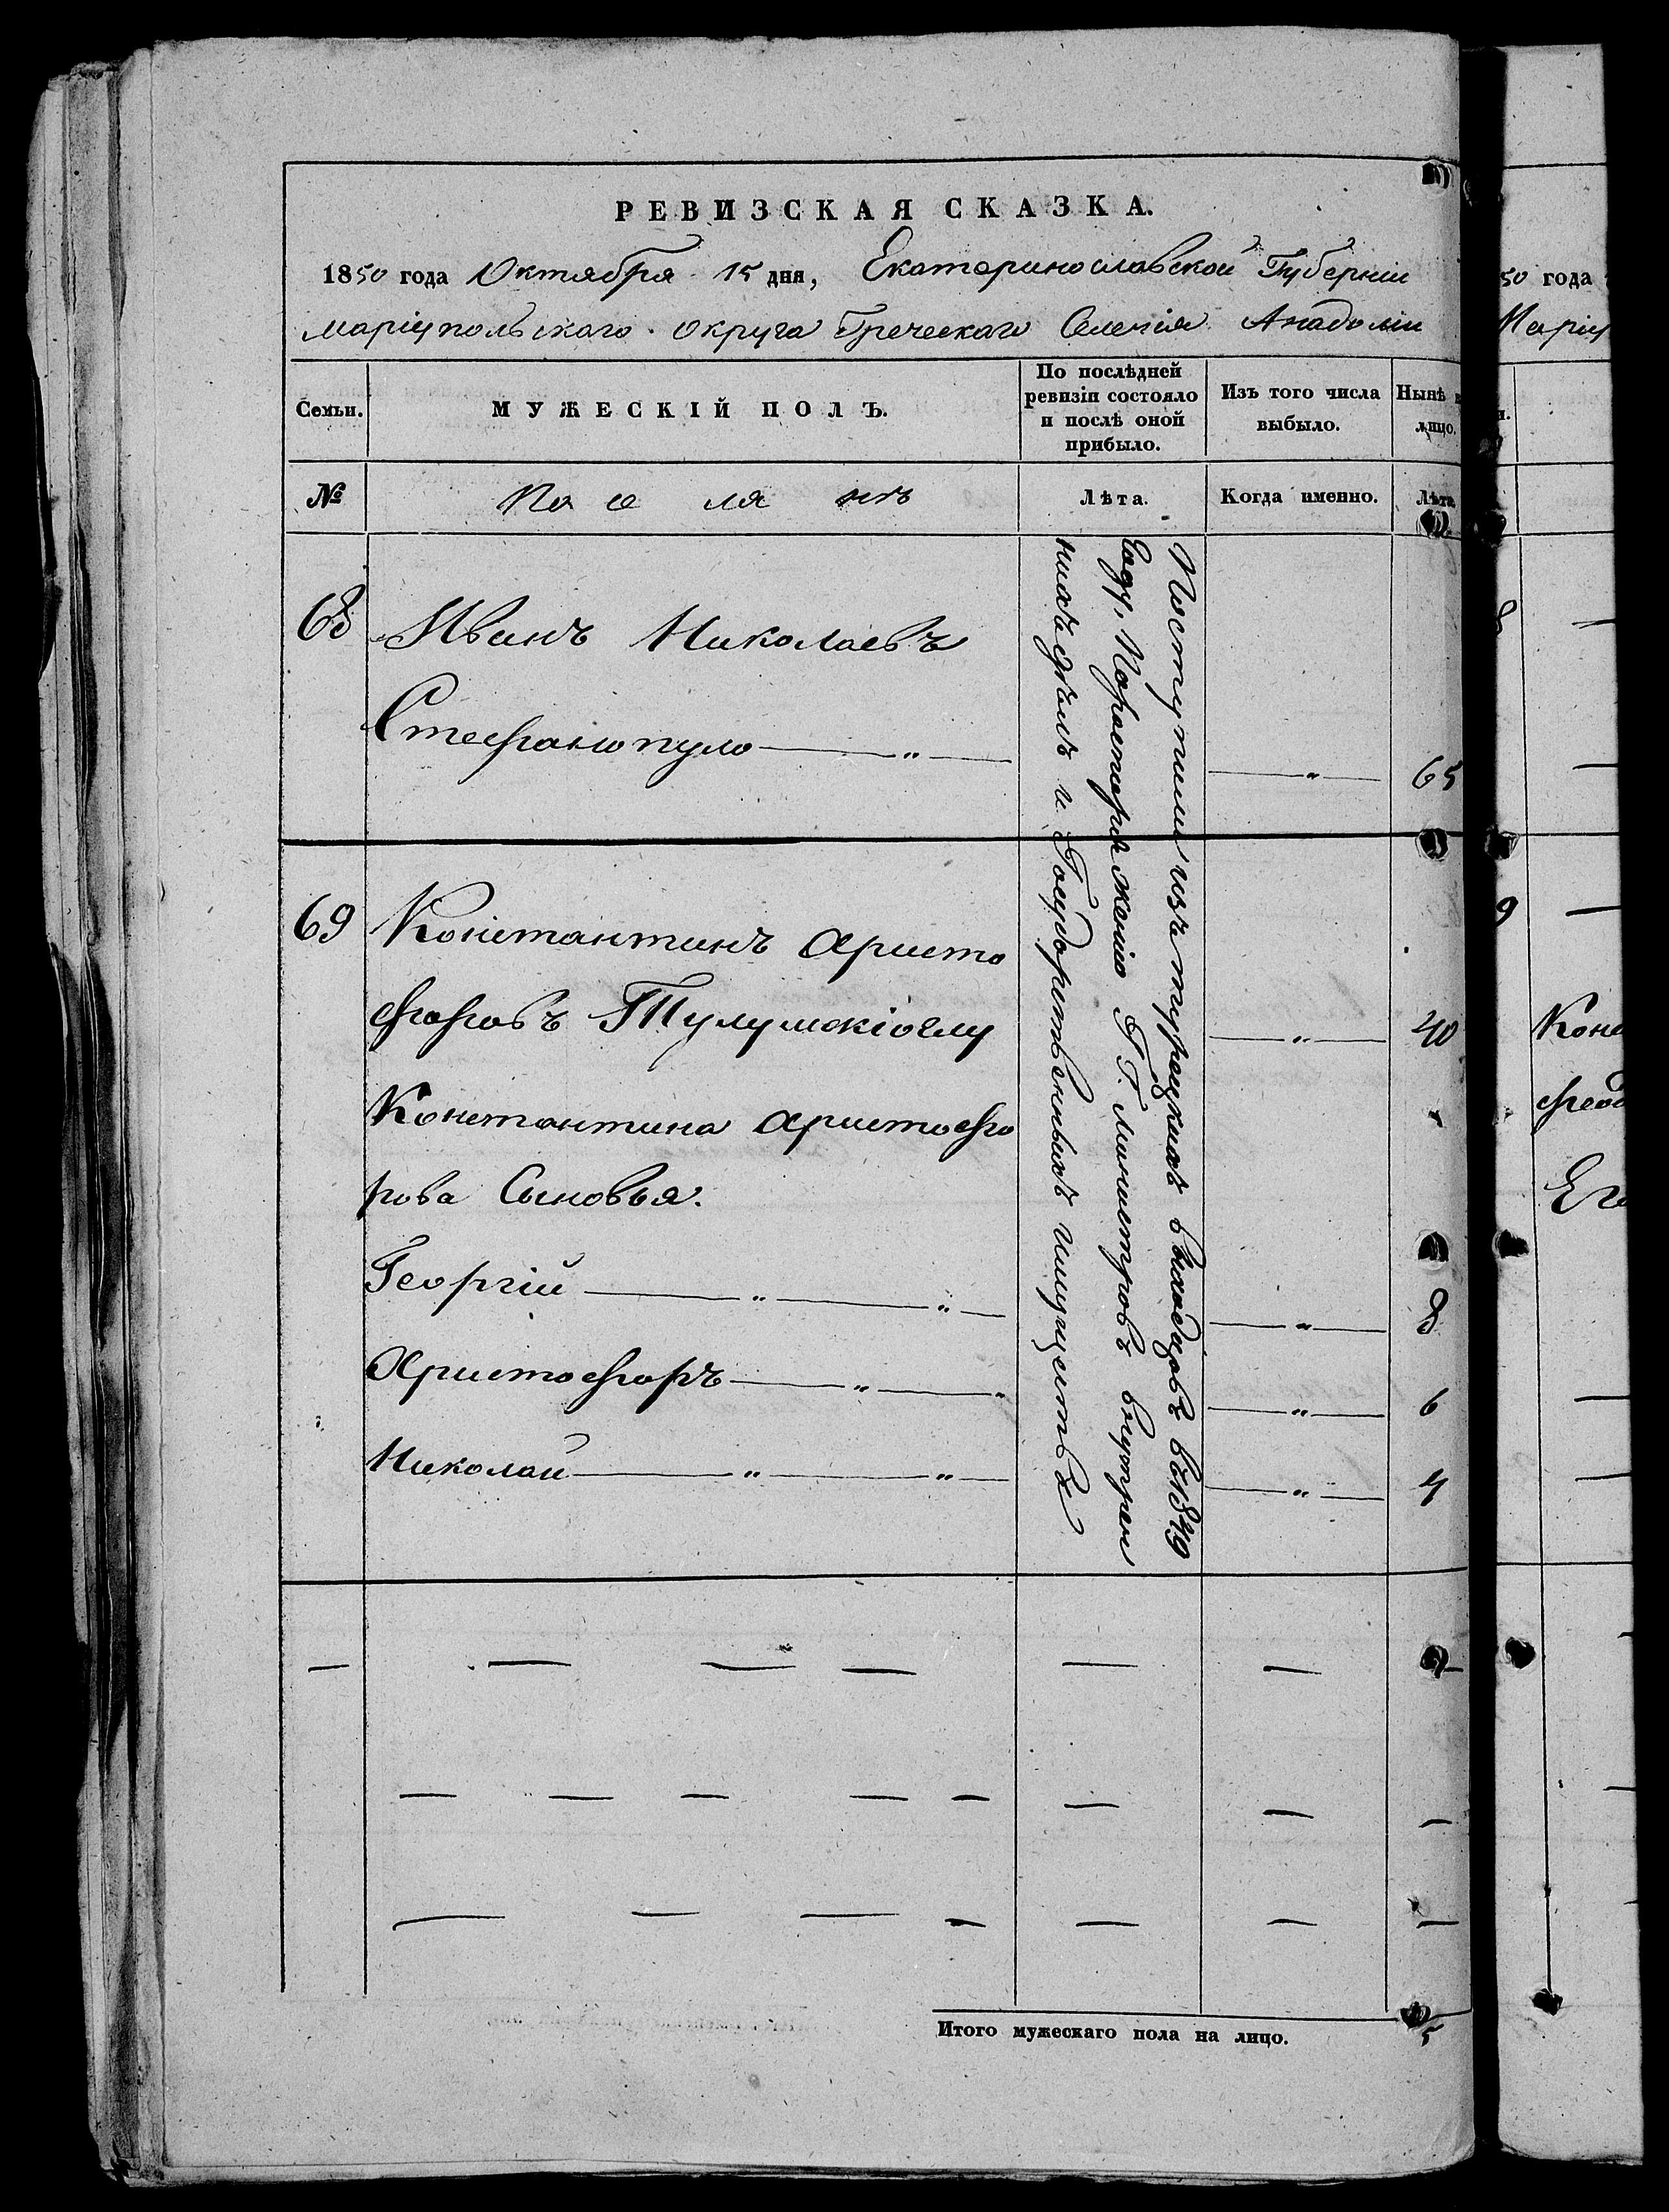 РЕВИЗСКАЯ СКАЗКА.
1850 года Октября 15 дня, Екатеринославской Губерніи
Маріупольскаго округа Греческаго Селенія Анадоліи
Семьи.
МУЖЕСКІЙ ПОЛЪ.
По послѣдней
ревизіи состояло
и послѣ оной
прибыло.
Изъ того числа
выбыло.
Нынѣ
лицо.
№
Лѣта.
Когда именно.
Лѣта
68 Иванъ Николаевъ
Стефанопуло — " — — " — 65
69 Константинъ Христо
форовъ Тулумжіоглу — " — 40
Константина Христофо
рова Сыновья.
Георгій — " — " — — " — 8
Христофоръ — " — " — " — 6
Николай — " — " — — " — 4
Поступили изъ турецкихъ выходцовъ въ 1849
году, по распоряженію Г.Г. министровъ внутрен
нихъ дѣлъ и Государственныхъ имуществъ
Итого мужескаго пола на лицо. 5
50 года
Маріу
8
9
Конс
феод
Его